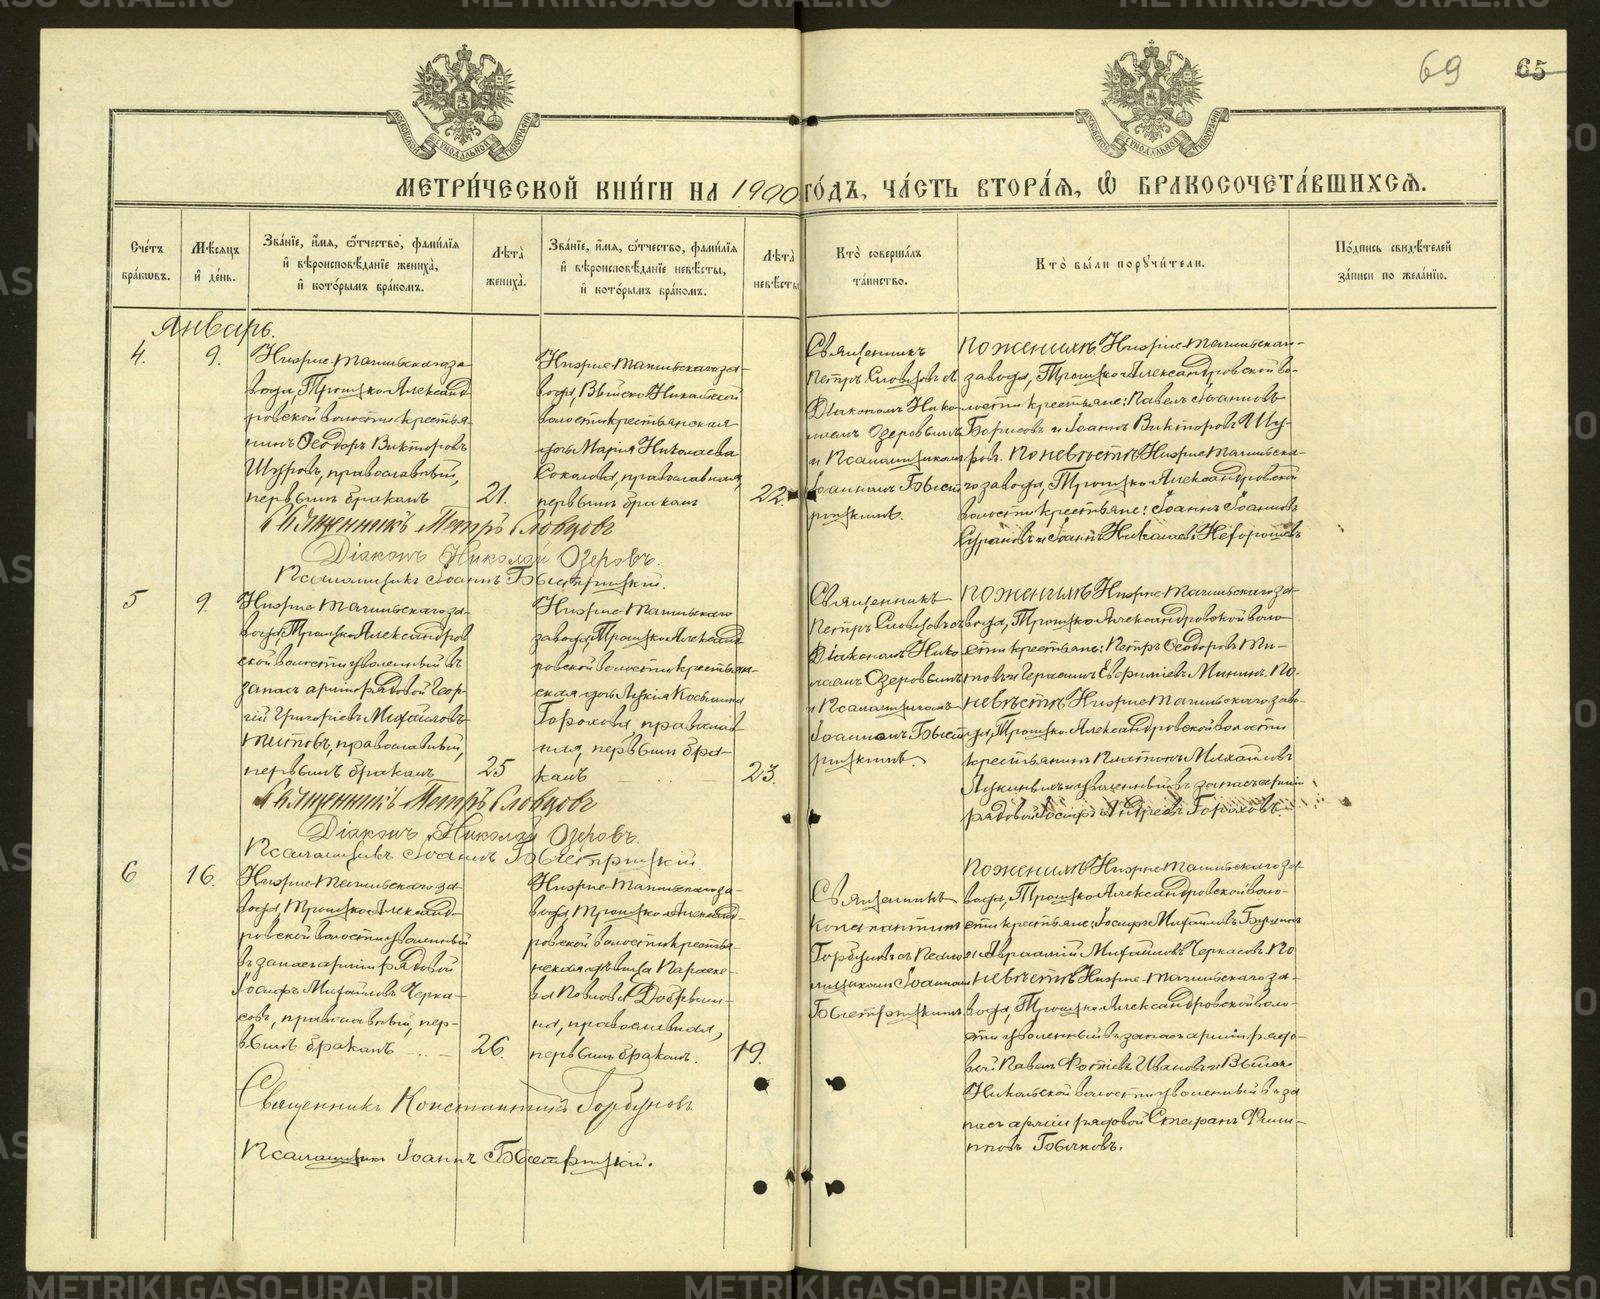 69 65
МОСКОВСКОЙ СѴНОДАЛЬНОЙ ТИПОГРАФІИ
МОСКОВСКОЙ СѴНОДАЛЬНОЙ ТИПОГРАФІИ
МЕТРИ́ЧЕСКОЙ КНИ́ГИ НА 1900 ГО́ДЪ, ЧА́СТЬ ВТОРА́Я, Ѽ БРАКОСОЧЕТА́ВШИХСЯ.
Сче́тъ
бра́кѡвъ.
Мѣ́сяцъ
и҆ де́нь.
Зва́нїе, и҆́мя, ѻ҆́тчество, фами́лїя
и҆ вѣроисповѣ́данїе жениха̀,
и҆ кото́рымъ бра́комъ.
Лѣта̀
жениха̀.
Зва́нїе, и҆́мя, ѻ҆́тчество, фами́лїя
и҆ вѣроисповѣ́данїе невѣ́сты,
и҆ кото́рымъ бра́комъ.
Лѣта̀
невѣ́сты
Кто̀ соверша́лъ
та́инство.
Кто̀ бы́ли порꙋчи́тели.
По́дпись свидѣ́телей
за́писи по жела́нїю.
Январь.
4.
9.
Нижне-Тагильскаго за-
вода, Троицко-Александ-
ровской волости крестья-
нинъ Ѳеодоръ Викторовъ
Щуровъ, православный,
первымъ бракомъ
21.
Нижне-Тагильскаго за-
вода, Выйско-Никольской
волости крестьянская
дочь Марія Николаева
Соколова, православная,
первымъ бракомъ
22.
Священникъ
Петръ Словцовъ съ
Діакономъ Нико-
лаемъ Озеровымъ
и Псаломщикомъ
Іоанномъ Быст-
рицкимъ.
По женихѣ: Нижне-Тагильскаго
завода, Троицко-Александровской во-
лости крестьяне: Павелъ Іоанновъ
Борисовъ и Іоаннъ Викторовъ Щу-
ровъ. По невѣстѣ: Нижне-Тагильска-
го завода, Троицко-Александровской
волости крестьяне: Іоаннъ Іоанновъ
и Іоаннъ Николаевъ
Священникъ Петръ Словцовъ
Діаконъ Николай Озеровъ.
Псаломщикъ Іоаннъ Быстрицкій.
5
9.
Нижне-Тагильскаго за-
вода, Троицко-Александров-
ской волости уволенный въ
запасъ арміи рядовой Геор-
гій Григоріевъ Михайловъ
Титовъ, православный,
первымъ бракомъ
25
Нижне-Тагильскаго
завода, Троицко-Александ-
ровской волости крестьян-
ская дочь Лукія Косьмина
Горохова, православ-
ная, первымъ бра-
комъ
23.
Священникъ
Петръ Словцовъ съ
Діакономъ Нико-
лаемъ Озеровымъ
и Псаломщикомъ
Іоанномъ Быст-
рицкимъ.
По женихѣ: Нижне-Тагильскаго за-
вода, Троицко-Александровской воло-
сти крестьяне: Петръ Ѳеодоровъ Ти-
товъ и Герасимъ Евфиміевъ Мининъ. По
невѣстѣ: Нижне-Тагильскаго заво-
да, Троицко-Александровской волости
крестьянинъ Платонъ Михайловъ
и уволенный въ запасъ арміи
рядовой Андреевъ Гороховъ.
Священникъ Петръ Словцовъ
Діаконъ Николай Озеровъ.
Псаломщикъ Іоаннъ Быстрицкій
6
16.
Нижне-Тагильскаго за-
вода, Троицко-Александ-
ровской волости уволенный
въ запасъ арміи рядовой
Іосифъ Михайловъ Черка-
совъ, православный, пер-
вымъ бракомъ
26.
Нижне-Тагильскаго за-
вода, Троицко-Александ-
ровской волости крестья-
нская дѣвица Параске-
ва Павлова Добрыни-
на, православная,
первымъ бракомъ.
19.
Священникъ
Константинъ
Горбуновъ съ Псало-
мщикомъ Іоанномъ
Быстрицкимъ
По женихѣ: Нижне-Тагильскаго за-
вода, Троицко-Александровской воло-
сти крестьяне: Іосифъ Михайловъ
и Авраамій Михайловъ Черкасовъ. По
невѣстѣ: Нижне-Тагильскаго за-
вода, Троицко-Александровской воло-
сти уволенный въ запасъ арміи рядо-
вой Павелъ Фотіевъ Ивановъ и Выйско-
Никольской волости уволенный въ за-
пасъ арміи рядовой Стефанъ Филип-
повъ Бычковъ.
Священникъ Константинъ Горбуновъ
Псаломщикъ Іоаннъ Быстрицкій.
METRIKI.GASO-URAL.RU